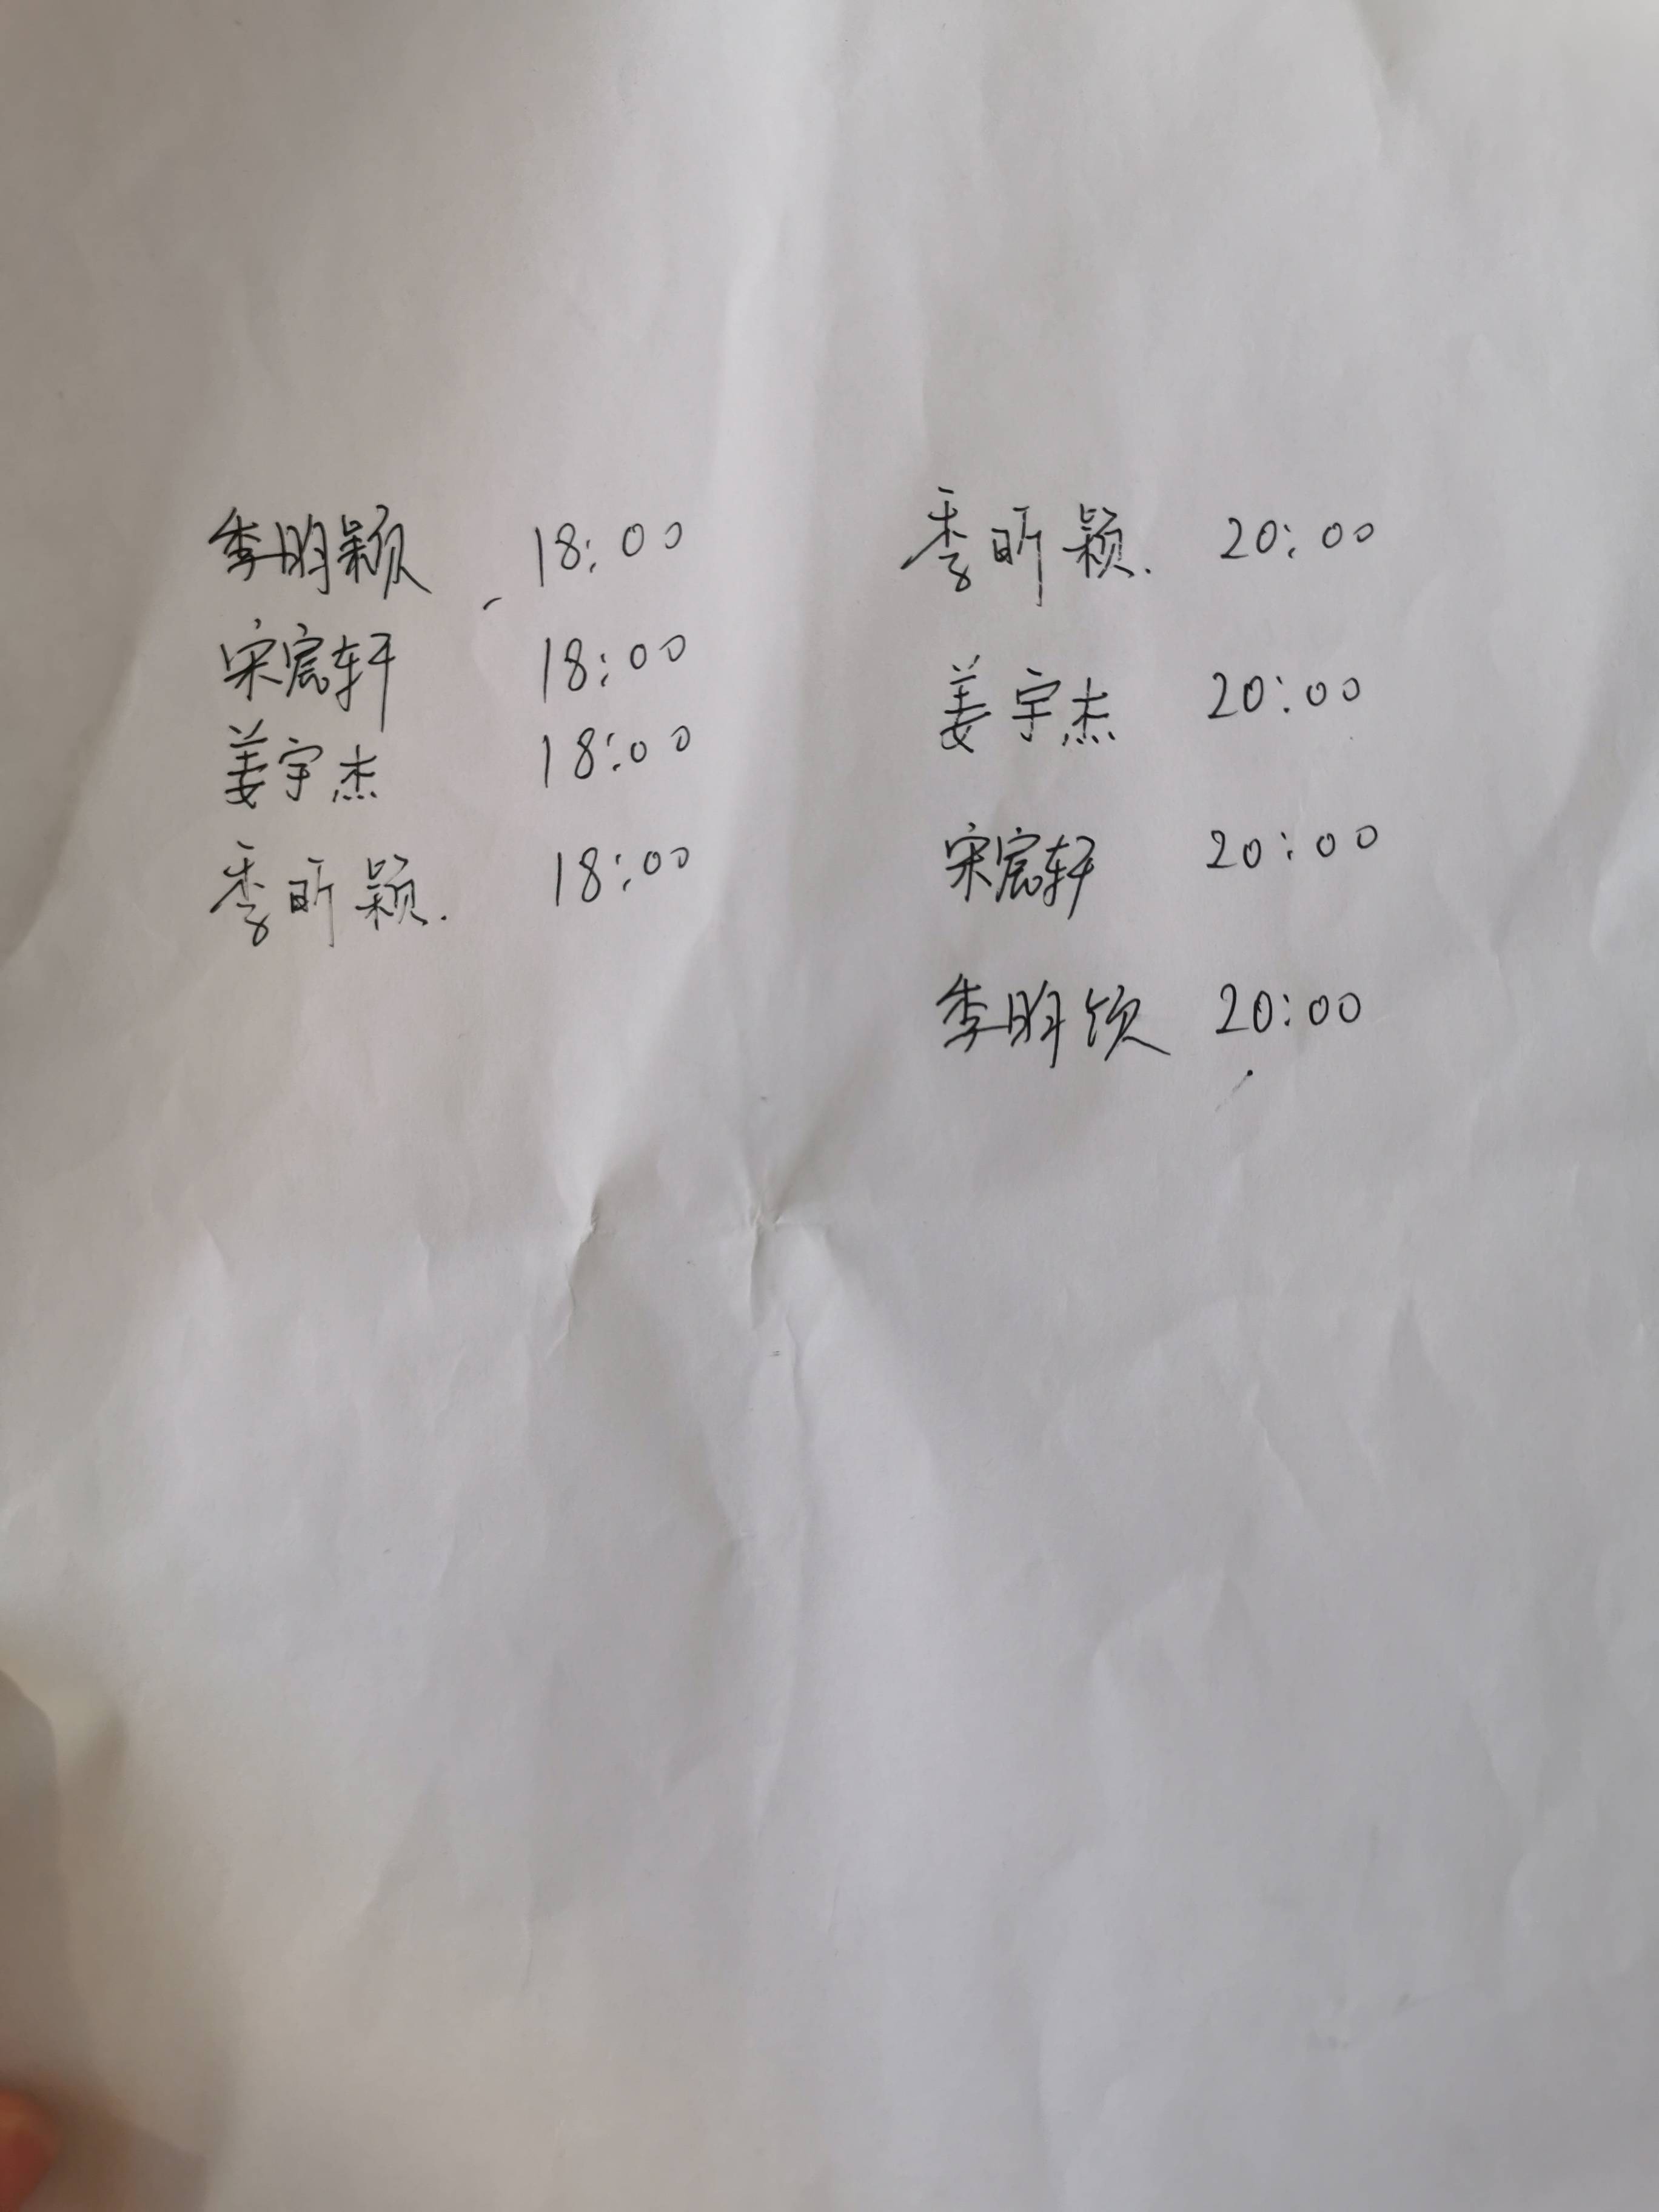 李明颖 18:00
宋宸轩 18:00
姜宇杰 18:00
季昕颖. 18:00
季昕颖. 20:00
姜宇杰 20:00
宋宸轩 20:00
李明颂 20:00